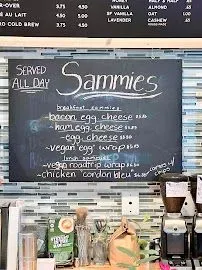 -OVER 3.75 4.50
AU LAIT 3.75 4.50
D COLD BREW 3.75 4.50
HONEY
VANILLA
SF VANILLA
LAVENDER
HALF & HALF
ALMOND
OAT
CASHEW
SERVED
ALL DAY
Sammies
breakfast sammies
-bacon, egg, cheese
-ham, egg, cheese
-egg, cheese
-vegan "egg" wrap
lunch sammies
-vegan roadtrip wrap
-chicken "cordon bleu"
comes w/
chips